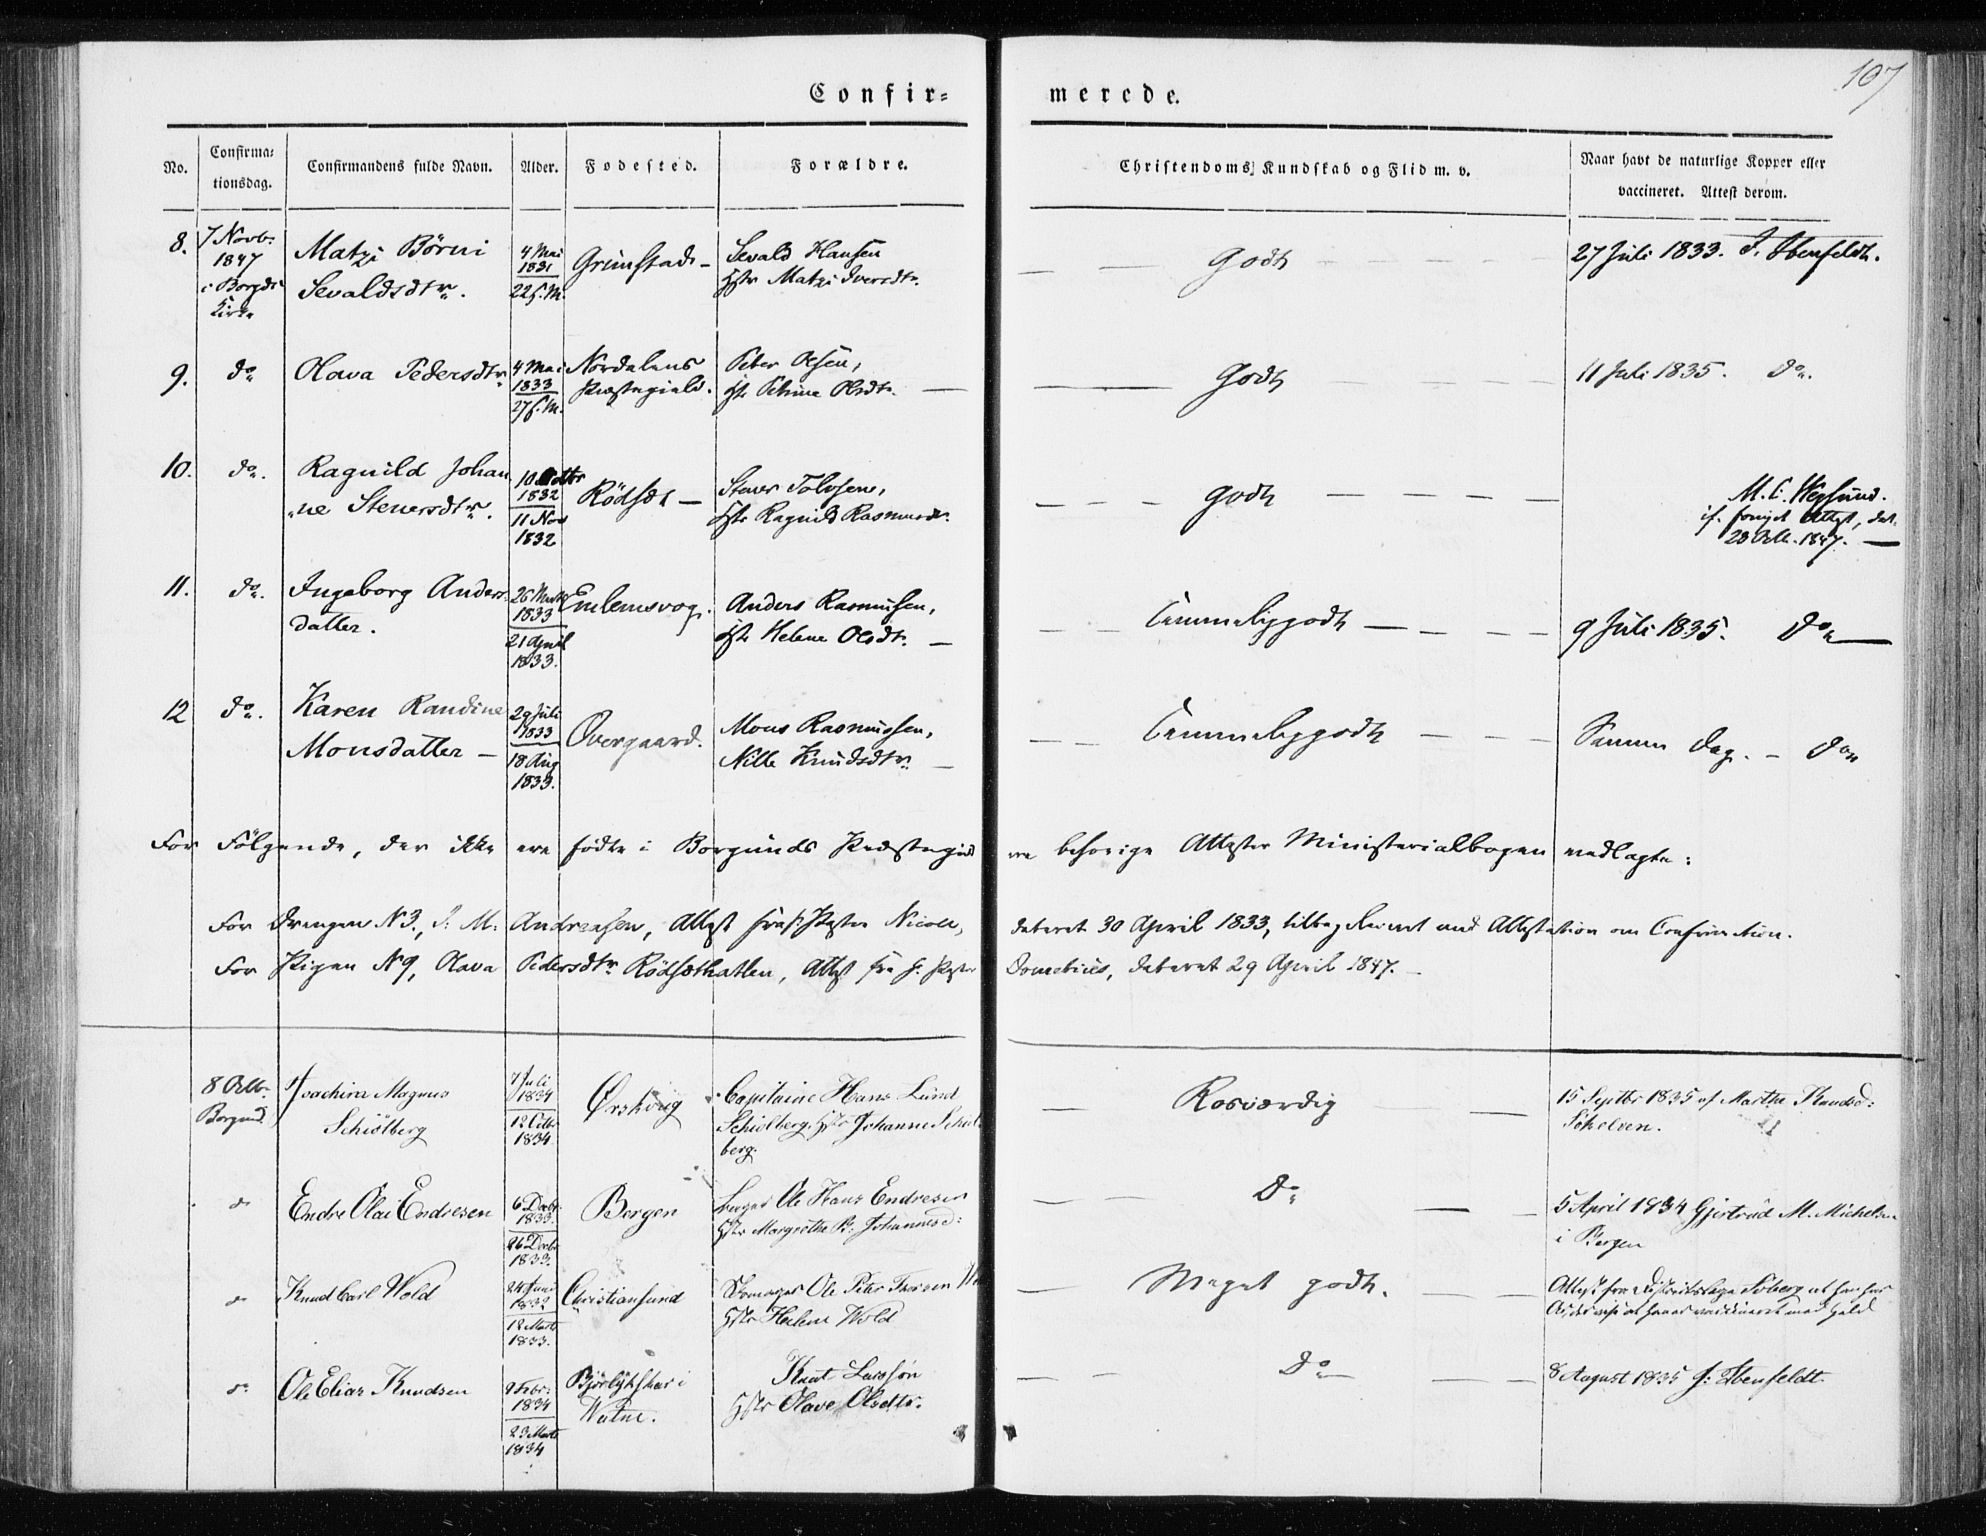 107
Confir= merede.
No.
Confirma=
tionsdag.
Confirmandens fulde Navn.
Alder.
Fodested.
Forældre.
Christendoms Kundskab og Flid m. v.
Naar havt de naturlige Kopper eller
vaccineret. Attest derom.
8. 7 Novb. 1847 i Borgds Kirke
Matzi Børni
Sevaldsdtr.
4 Mai
1831
22 s. M.
Grimstad –
Sevald Hansen
Hstr Matzi Iversdtr.
Godt
27 Juli 1833. J. Ibenfeldt.
9. do
Olava Pedersdtr
4 Mai
1833
27 s. M.
Nordalens
Præstegield.
Peter Olsen,
Hstr Petrine Olsdtr. –
Godt
11 Juli 1835. do.
10. do.
Ragnild Johan
ne Stenersdtr.
10 Octbr
1832
11 Nov
1832
Rödset –
Stener Tolvsen,
Hstr Ragnild Rasmusdr.
Godt
M. C. Wegsund.
if. Attest, dat.
28 Octb. 1847. –
11. do.
Ingeborg Anders
datter.
26 Marts
1833
21 April
1833.
Emlemsvog.
Anders Rasmussen,
Hstr Helene Olsdtr. –
Temmeligodt
9 Juli 1835. do
12 do.
Karen Randine
Monsdatter –
29 Juli
1833
18 Aug
1833.
Overgaard.
Mons Rasmussen,
Nille Knudsdtr. –
Temmeligodt
Samme Dag. – do
For Fölgende, der ikke ere födte i Borgunds Præstegield ere behorige Attester Ministerialbogen vedlagte:
For Drengen N 3., J. M. Andreasen, Attest fra Nicoll, dateret 30 April 1833, tilbageleveret med Attestation om Confirmation.
For Pigen N 9, Olava Pedersdtr Rödsethatlen, Attest fra dateret 29 April 1847. –
8 Octb.
Borgund.
Joachim Magnus
Schiölberg
7 Juli
1834
12 Octbr
1834
Ørskoug
Capitaine Hans Lund
Schiölberg, Hstr Johanne Schiöl
berg.
Rosværdig
15 Septbr 1835 af Marthe Knudsd:
do
Endre Olai Endresen
6 Decbr.
1833.
26 Decbr
1833.
Bergen
Ole Hans Endresen
Hstr Margrethe R: Johannesd:
Do
5 April 1834 Gjertrud M. Michelsen
i Bergen
do
Knud Carl Wold
24 Juni
1832
12 Marts
1833.
Christiansund
Ole Peter Wold
Hstr Helene Wold
Meget godt.
Attest fra Söberg at han har
do
Ole Elias Knudsen
9 Febr.
1834
23 Marts
1834
Björlykhar i
Watne.
Knut Larssön
Hstr Olave Olsdtr.
Do
8 August 1835 J: Ibenfeldt.